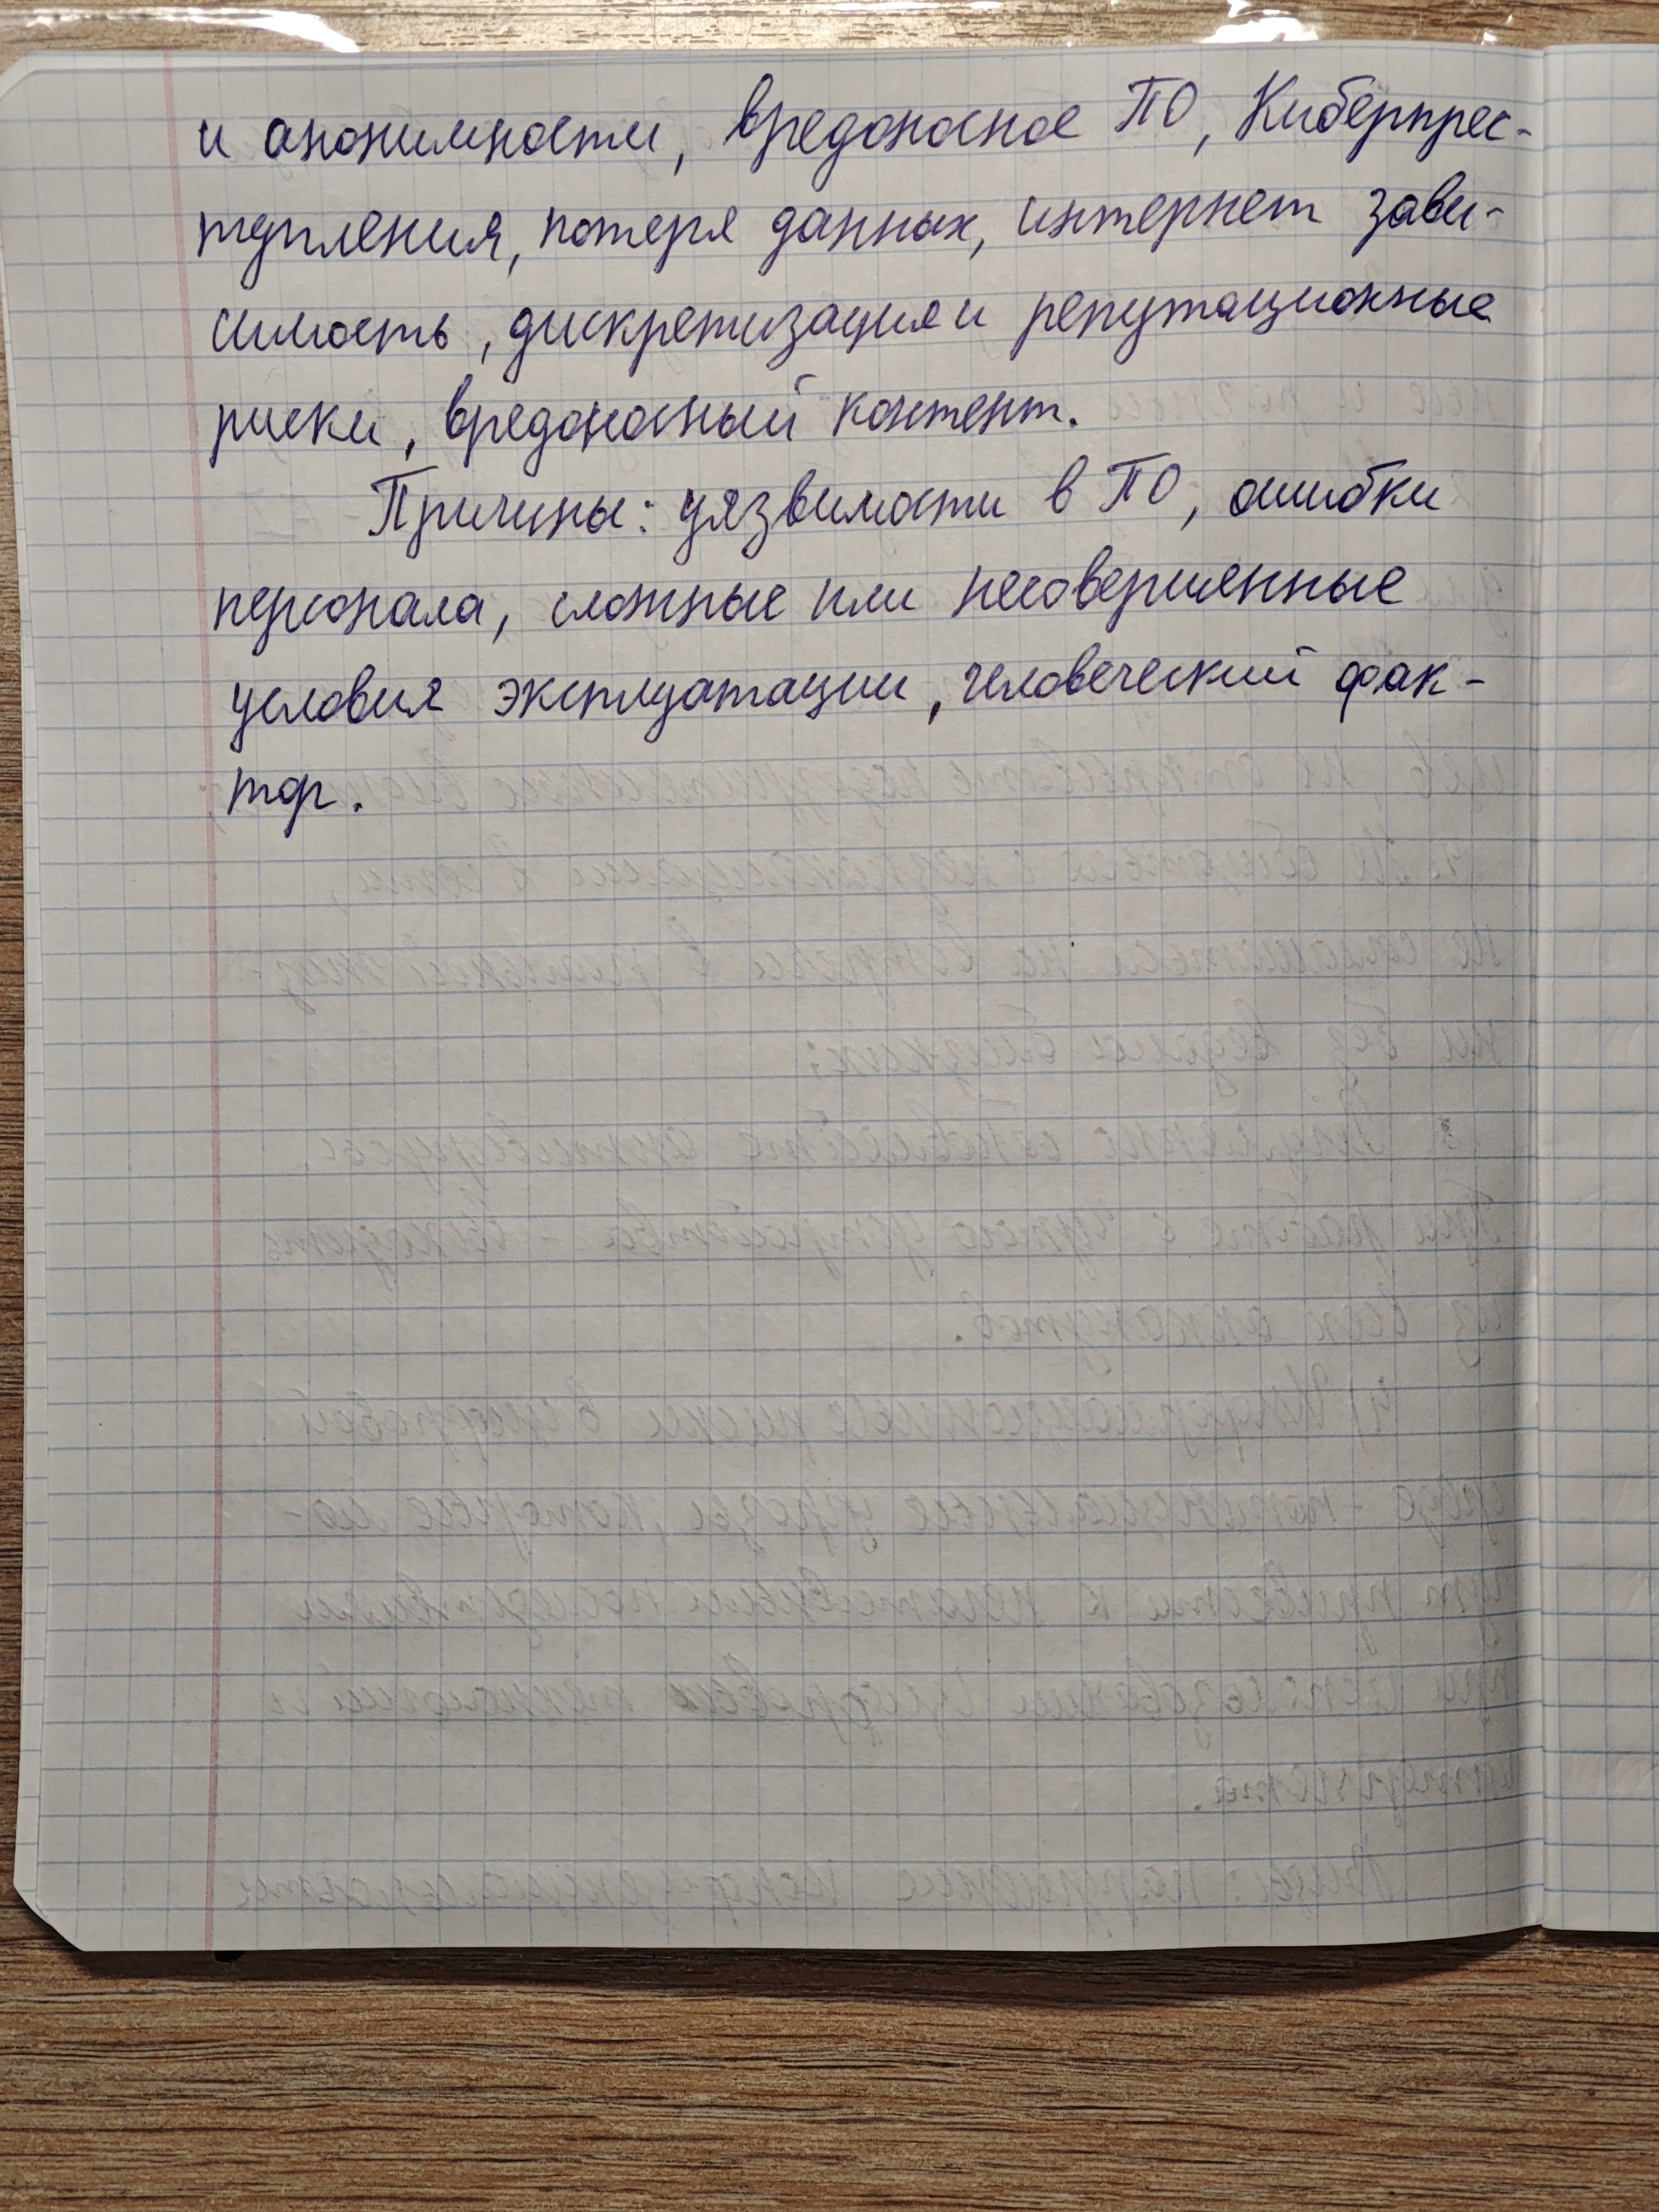 и анонимности, вредоносное ПО, Киберпрес-
тупления, потеря данных, интернет зави-
симость, дискретизация и репутационные
риски, вредоносный контент.
Причины: уязвимости в ПО, ошибки
персонала, сложные или несовершенные
условия эксплуатации, человеческий фак-
тор.